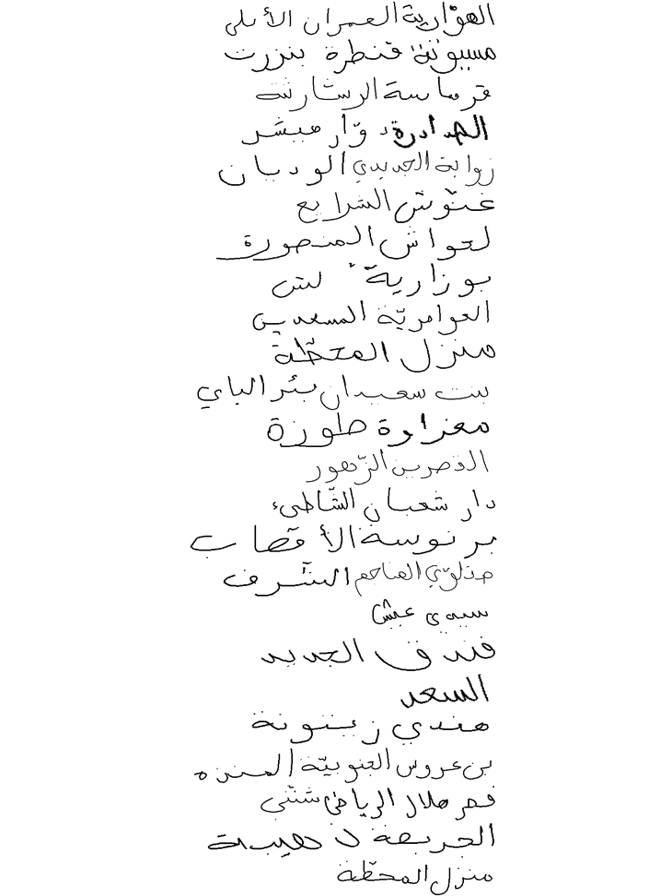 الهوّارية العمران الأعلى
مسيوتة قنطرة بنزرت
قرماسة الرشارشة
الصدادرة دوّار مبشر
زواية الجديدي الوديان
غنّوش الشرايع
لحواش المنصورة
بوزاريّة لش
العوامريّة المسعدين
منزل المحطّة
بنت سعيدان بئر الباي
مغراوة طورة
القصرين الزّهور
دار شعبان الشّاطئ
برنوسة الأقصاب
صدلوّي المناجم الشّرف
سيدي عيش
فندق الجديد
السعد
هندي زيتونة
بن عروس الجنوبيّة المنزه
قصر هلال الرياض شنّني
الحريصة ذهيبة
منزل المحطّة